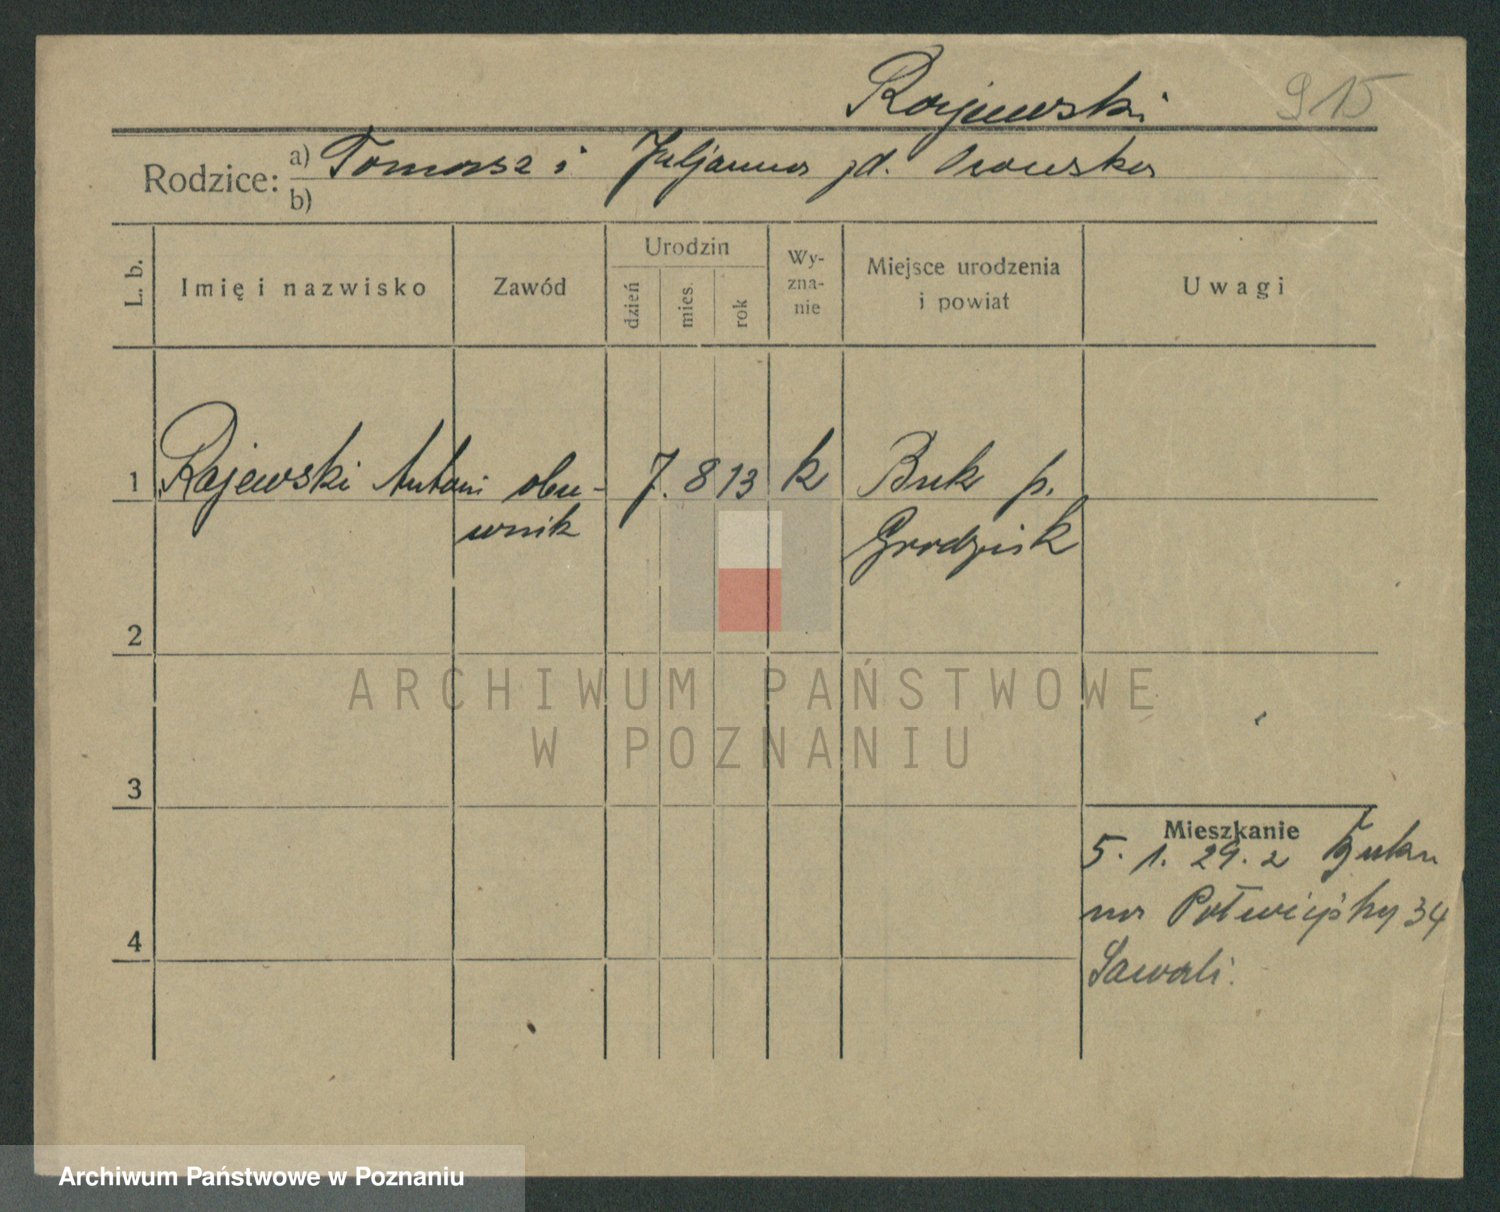 Rajewski 915
Rodzice: a) Tomasz i Juljanna zd.
b)
L. b. Imię i nazwisko Zawód Urodzin dzień mies. rok Wy-zna-nie Miejsce urodzenia i powiat Uwagi
1 Rajewski Antoni obu- 7. 8 13 k Buk p.
wnik Grodzisk
2
ARCHIWUM PAŃSTWOWE
W POZNANIU
3
Mieszkanie
5. 1. 29. z Buku
na 34
4
Archiwum Państwowe w Poznaniu